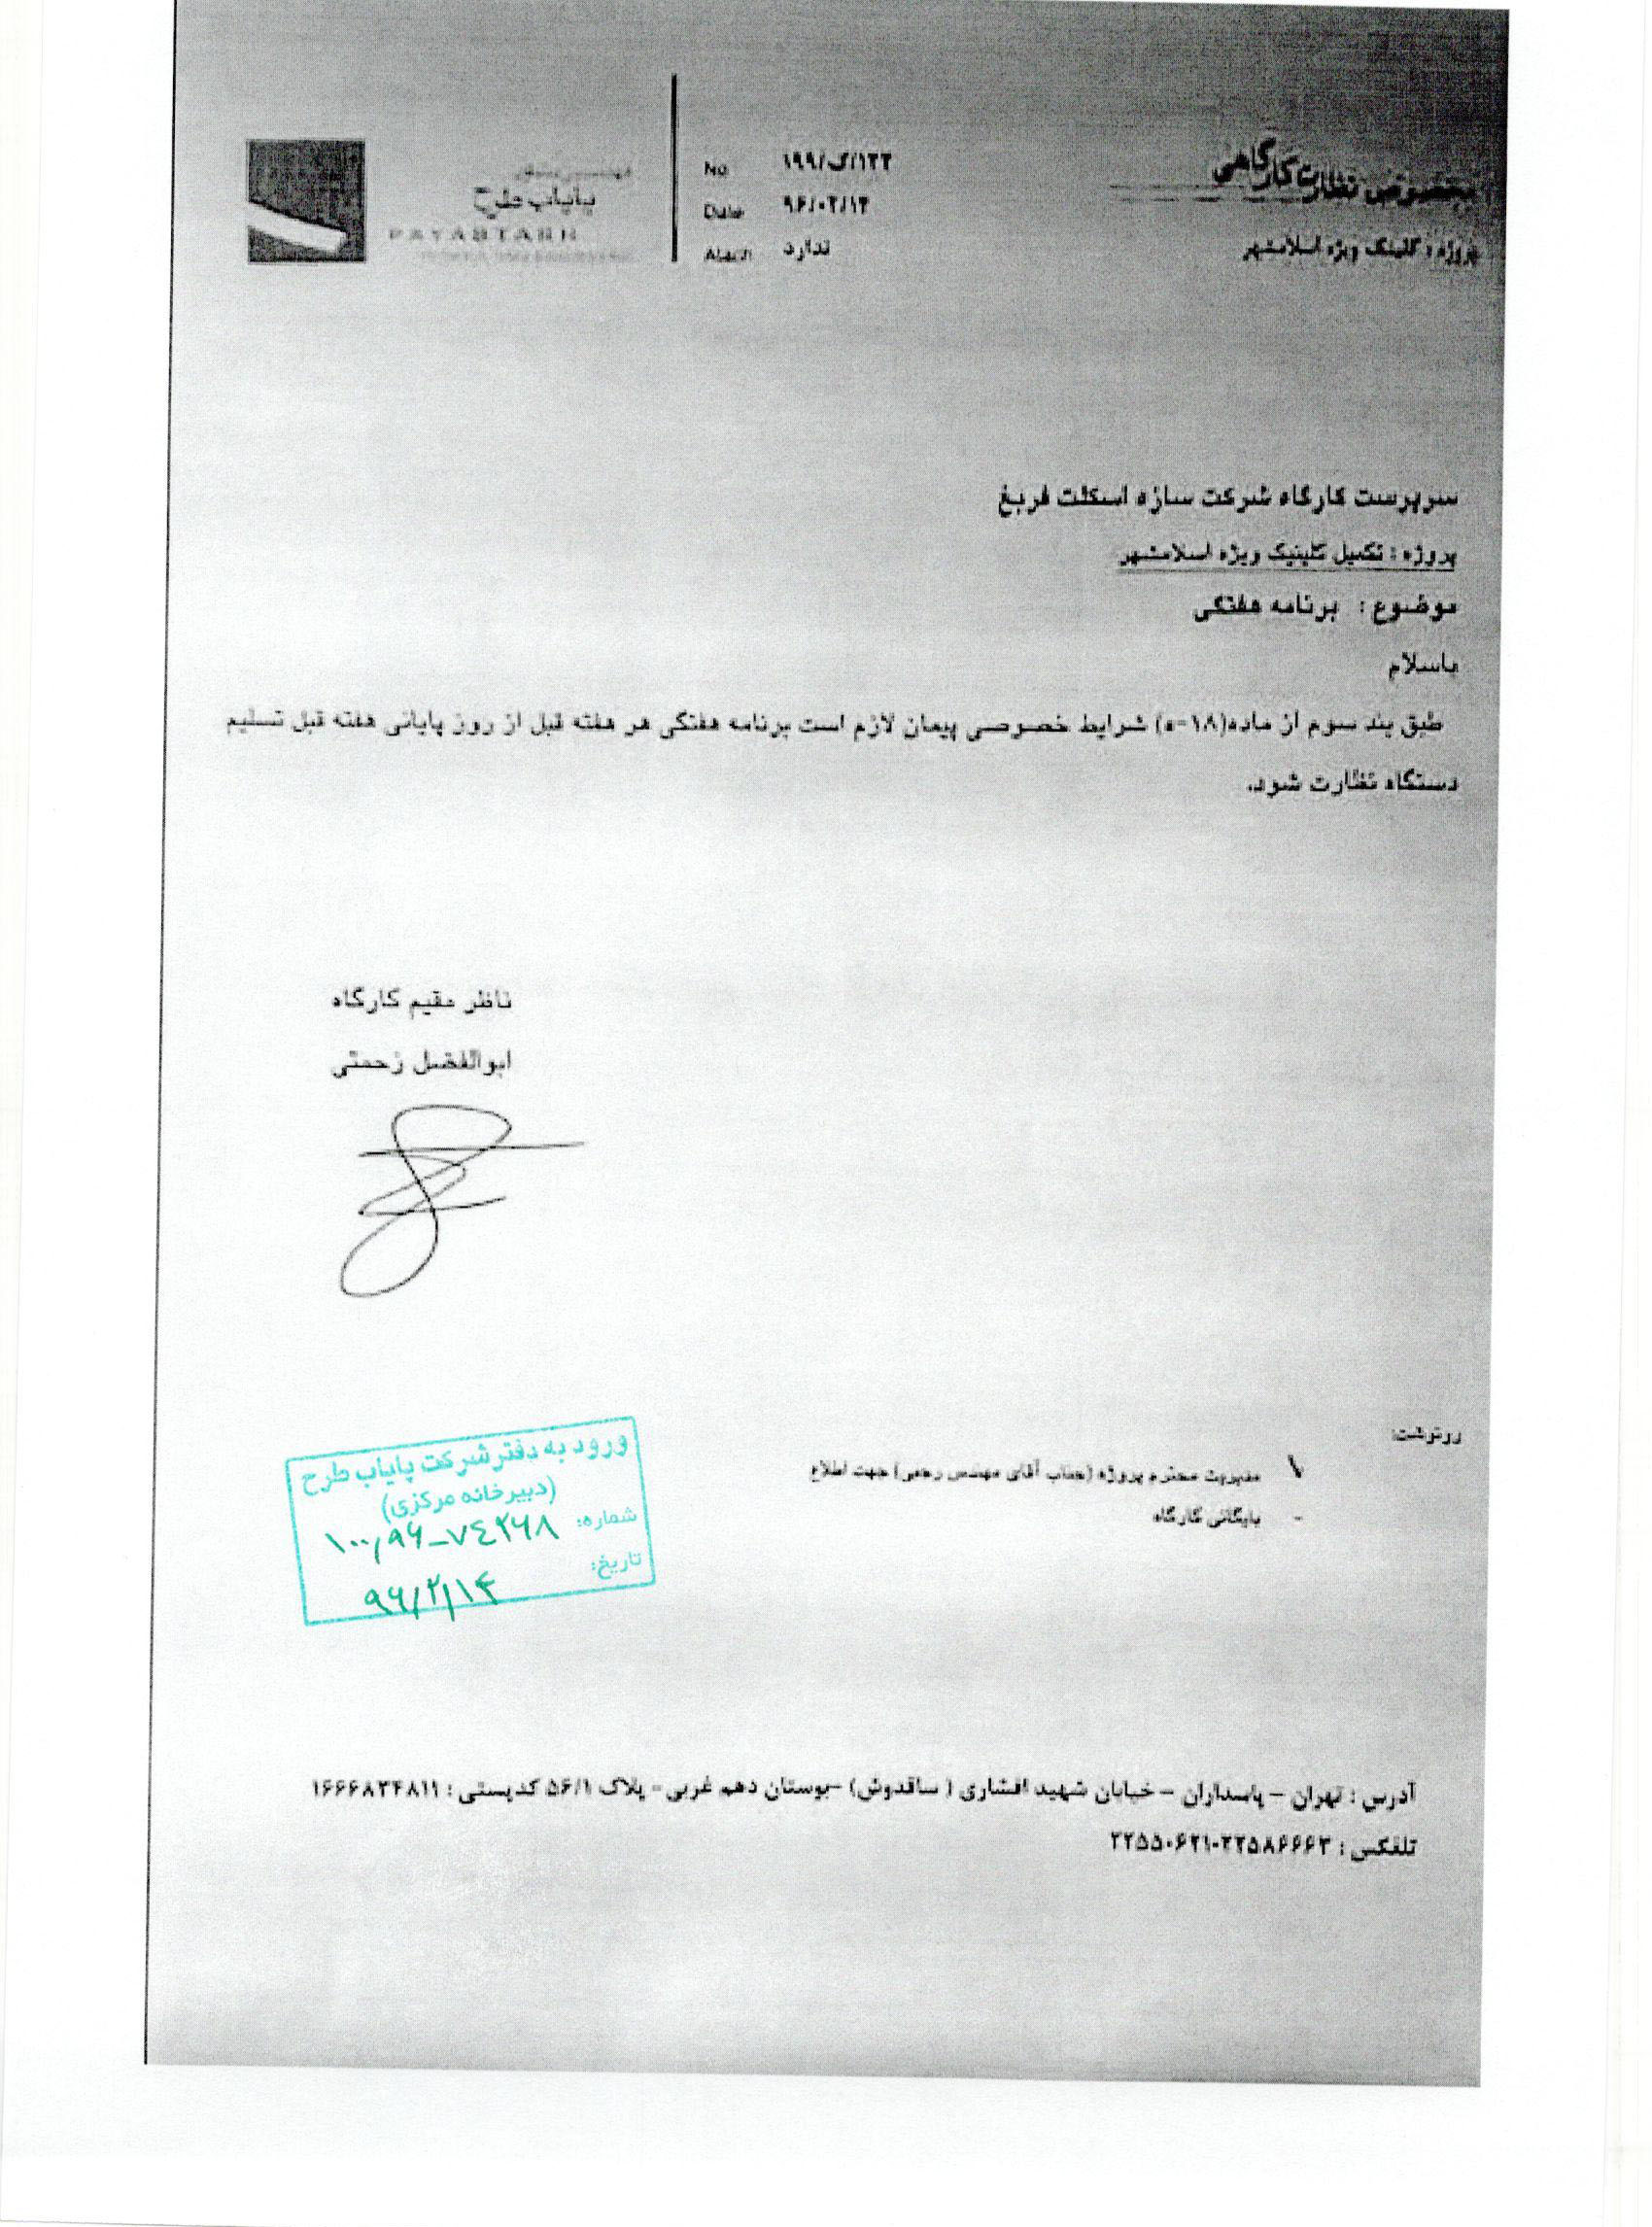 مخصوص نظارت کارگاهی
پروژه : کلینیک ویژه اسلامشهر
No ۱۹۹/ک/۱۲۲
Date ۹۶/۰۲/۱۲
Atach ندارد
پایاب طرح
PAYABTARH
سرپرست کارگاه شرکت سازه اسکلت فربغ
پروژه : تکمیل کلینیک ویژه اسلامشهر
موضوع : برنامه هفتگی
باسلام
طبق بند سوم از ماده(۱۸-ه) شرایط خصوصی پیمان لازم است برنامه هفتگی هر هفته قبل از روز پایانی هفته قبل تسلیم
دستگاه نظارت شود.
ناظر مقیم کارگاه
ابوالفضل زحمتی
رونوشت:
مدیریت محترم پروژه (جناب آقای مهندس رجبی) جهت اطلاع
- بایگانی کارگاه
ورود به دفتر شرکت پایاب طرح
(دبیرخانه مرکزی)
شماره: ۱۰۰٫۹۶-۷۴۲۶۸
تاریخ: ۹۶/۲/۱۴
آدرس : تهران – پاسداران – خیابان شهید افشاری ( ساقدوش) –بوستان دهم غربی– پلاک ۵۶/۱ کدپستی : ۱۶۶۶۸۳۴۸۱۱
تلفکس : ۲۲۵۸۶۶۶۳-۲۲۵۵۰۶۲۱